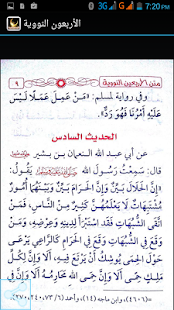 3G 4G 7:20 PM
الأربعون النووية
متن الأربعين النووية
٩
وفي رواية لمسلم: «مَنْ عَمِلَ عَمَلًا لَيْسَ
عَلَيْهِ أَمْرُنَا فَهُوَ رَدٌّ».
الحديث السادس
عن أبي عبد الله النعمان بن بشير
قال: سَمِعْتُ رَسُولَ الله ﷺ يَقُولُ:
«إِنَّ الْحَلَالَ بَيِّنٌ وَإِنَّ الْحَرَامَ بَيِّنٌ وَبَيْنَهُمَا أُمُورٌ
مُشْتَبِهَاتٌ لَا يَعْلَمُهُنَّ كَثِيرٌ مِنَ النَّاسِ، فَمَنِ
اتَّقَى الشُّبُهَاتِ فَقَدِ اسْتَبْرَأَ لِدِينِهِ وَعِرْضِهِ، وَمَنْ
وَقَعَ فِي الشُّبُهَاتِ وَقَعَ فِي الْحَرَامِ كَالرَّاعِي يَرْعَى
حَوْلَ الْحِمَى يُوشِكُ أَنْ يَرْتَعَ فِيهِ، أَلَا وَإِنَّ لِكُلِّ
مَلِكٍ حِمًى أَلَا وَإِنَّ حِمَى اللهِ مَحَارِمُهُ أَلَا وَإِنَّ فِي
(٤٦٠٦)، وابن ماجه (١٤)، وأحمد (٦/ ٧٣، ٢٤٠، ٢٧٠).